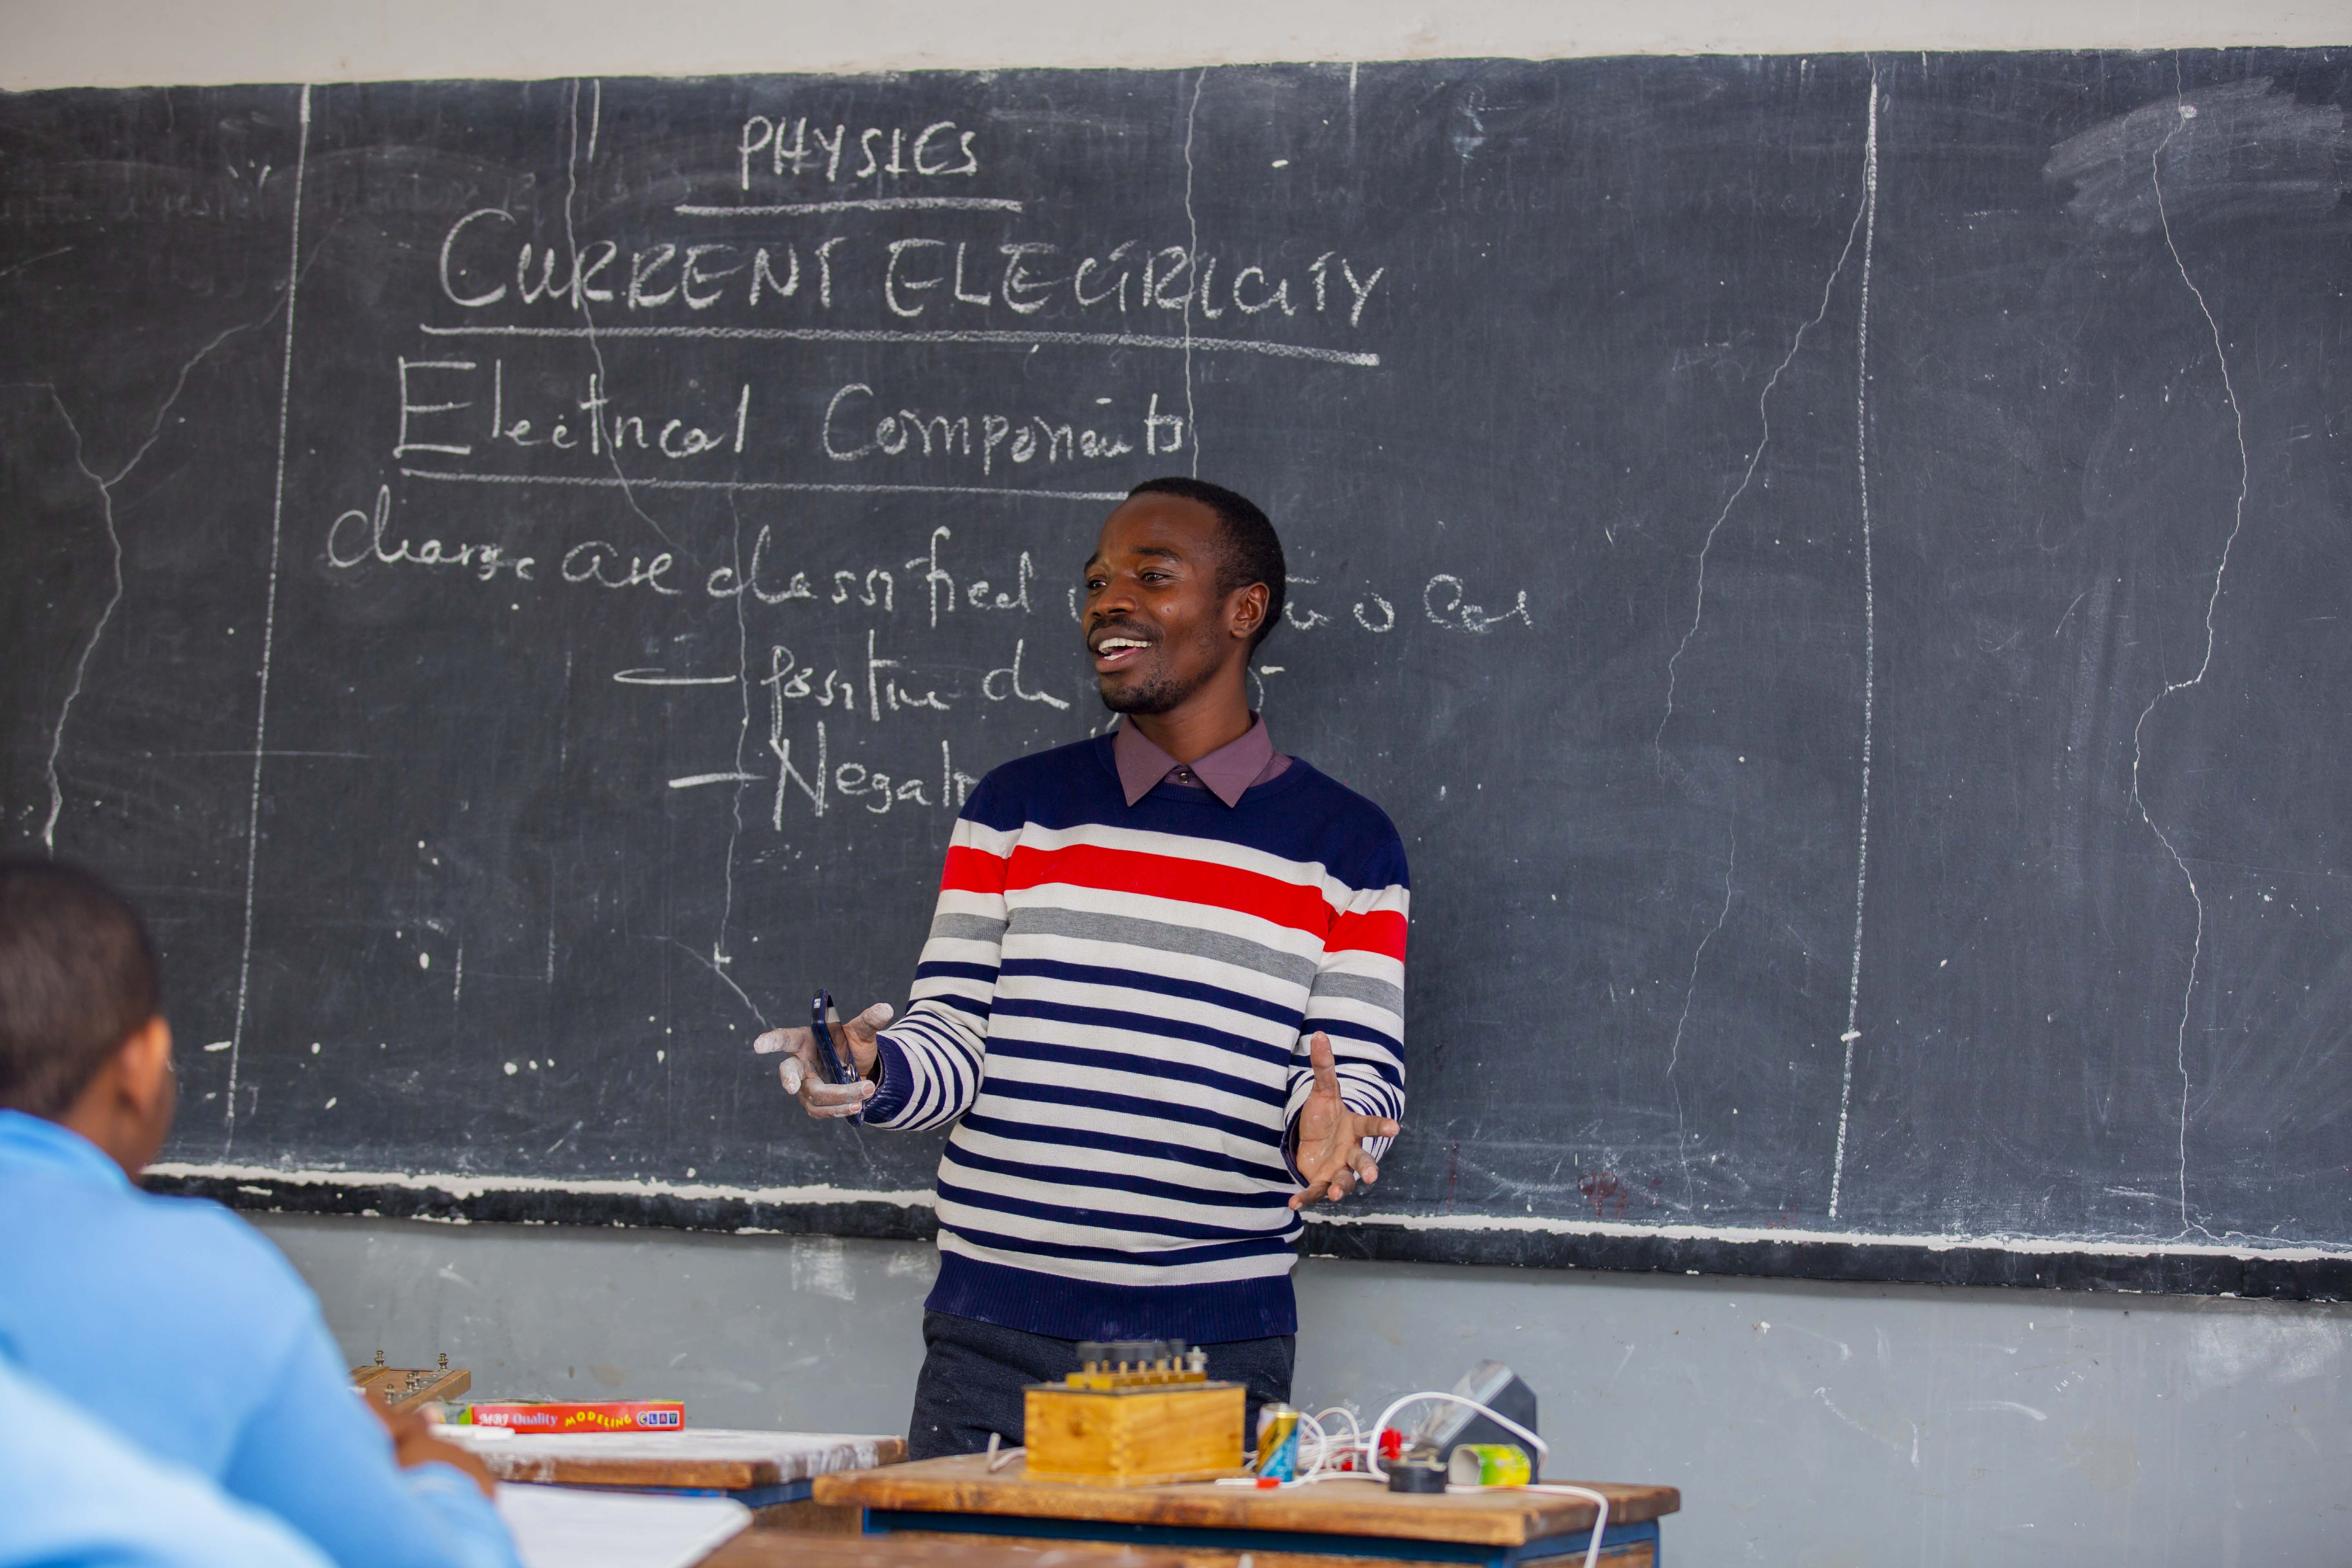 PHYSICS
CURRENT ELECTRICITY
Electrical Components
charge are classified
- Positive
- Negat
MRJ Quality MODELING CLAY